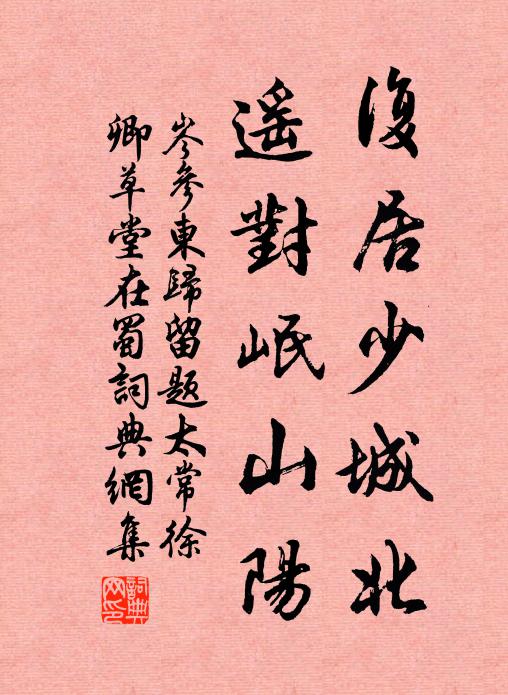 復居少城北
遥對岷山陽
岑參東歸留題太常徐
卿草堂在蜀詞典網集
詞典網印